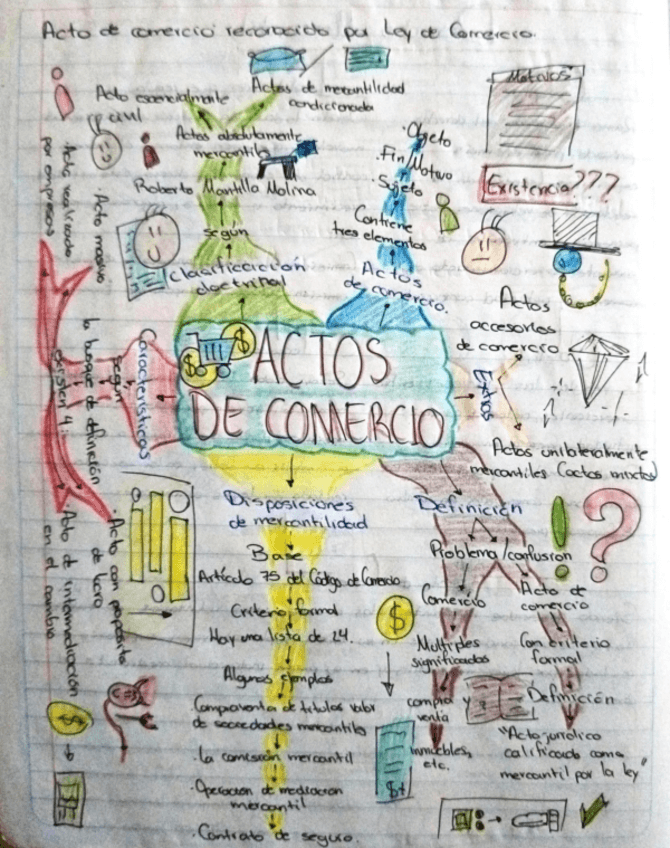 Acto de comercio reconocido por Ley de Comercio.
Actos de mercantilidad
condicionada
Acto esencialmente
civil
Actos absolutamente
mercantiles
Roberto Mantilla Molina
según
Clasificación
doctrinal
• Objeto
• Fin/Motivo
• Sujeto
Contiene
tres elementos
Actos
de comercio.
Motivos
Existencia???
Actos
accesorios
de comercio
Extras
Actos unilateralmente
mercantiles (actos mixtos)
ACTOS
DE COMERCIO
$
$
Características
según
la búsqueda de definición
existen 4:
• Acto realizado
por empresas
• Acto masivo
• Acto con propósito
de lucro
Acto de intermediación
en el cambio
Disposiciones
de mercantilidad
Base
Artículo 75 del Código de Comercio
Criterio formal
Hay una lista de 24.
Algunos ejemplos
• Compraventa de títulos valor
de sociedades mercantiles
• La comisión mercantil
• Operación de mediación
mercantil
• Contrato de seguro.
Definición
Problema/confusión
Comercio
Múltiples
significados
compra y
venta
inmuebles,
etc.
Acto de
comercio
Con criterio
formal
Definición
"Acto jurídico
calificado como
mercantil por la ley"
$
$+
$
! ?